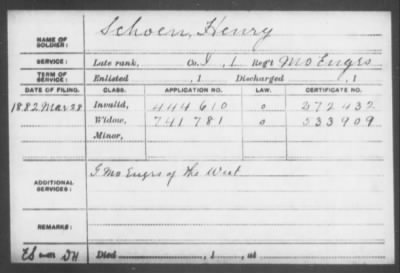 NAME OF SOLDIER: Schoen, Henry
SERVICE: Late rank, Co. I, 1 Reg't Mo Engrs
TERM OF SERVICE: Enlisted , 1 Discharged , 1
DATE OF FILING. CLASS. APPLICATION NO. LAW. CERTIFICATE NO.
1882 Mar 28 Invalid, 444610 o 272432
Widow, 741781 o 533909
Minor,
ADDITIONAL SERVICES: I Mo Engrs of the West
REMARKS:
Died , 1 , at